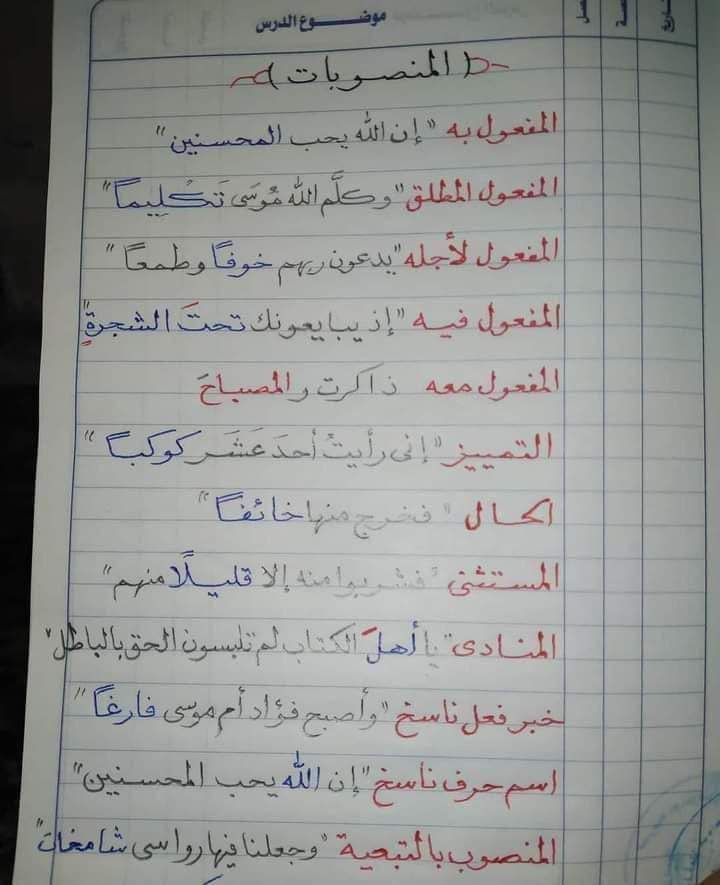 موضوع الدرس
(المنصوبات)
المفعول به "إن الله يحب المحسنين"
المفعول المطلق "وكلَّم الله مُوسَى تَكْلِيماً"
المفعول لأجله "يدعون ربهم خوفاً وطمعًا"
المفعول فيه "إذ يبايعونك تحتَ الشجرةِ"
المفعول معه ذاكرت والمصباحَ
التمييز "إنى رأيتُ أحدَ عَشَر كوكباً"
الحال "فخرج منها خائفاً"
المستثنى "فشربوا منه إلا قليلًا منهم"
المنادى "يا أهلَ الكتاب لم تلبسون الحق بالباطل"
خبر فعل ناسخ "وأصبح فؤاد أم موسى فارغاً"
اسم حرف ناسخ "إن الله يحب المحسنين"
المنصوب بالتبعية "وجعلنا فيها رواسى شامخات"